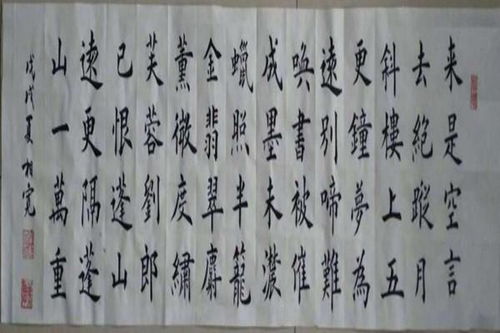 来是空言
去絕蹤月
斜樓上五
更鐘夢為
遠別啼難
喚書被催
成墨未濃
蠟照半籠
金翡翠麝
薰微度繡
芙蓉劉郎
已恨蓬山
遠更隔蓬
山一萬重
戊戌夏